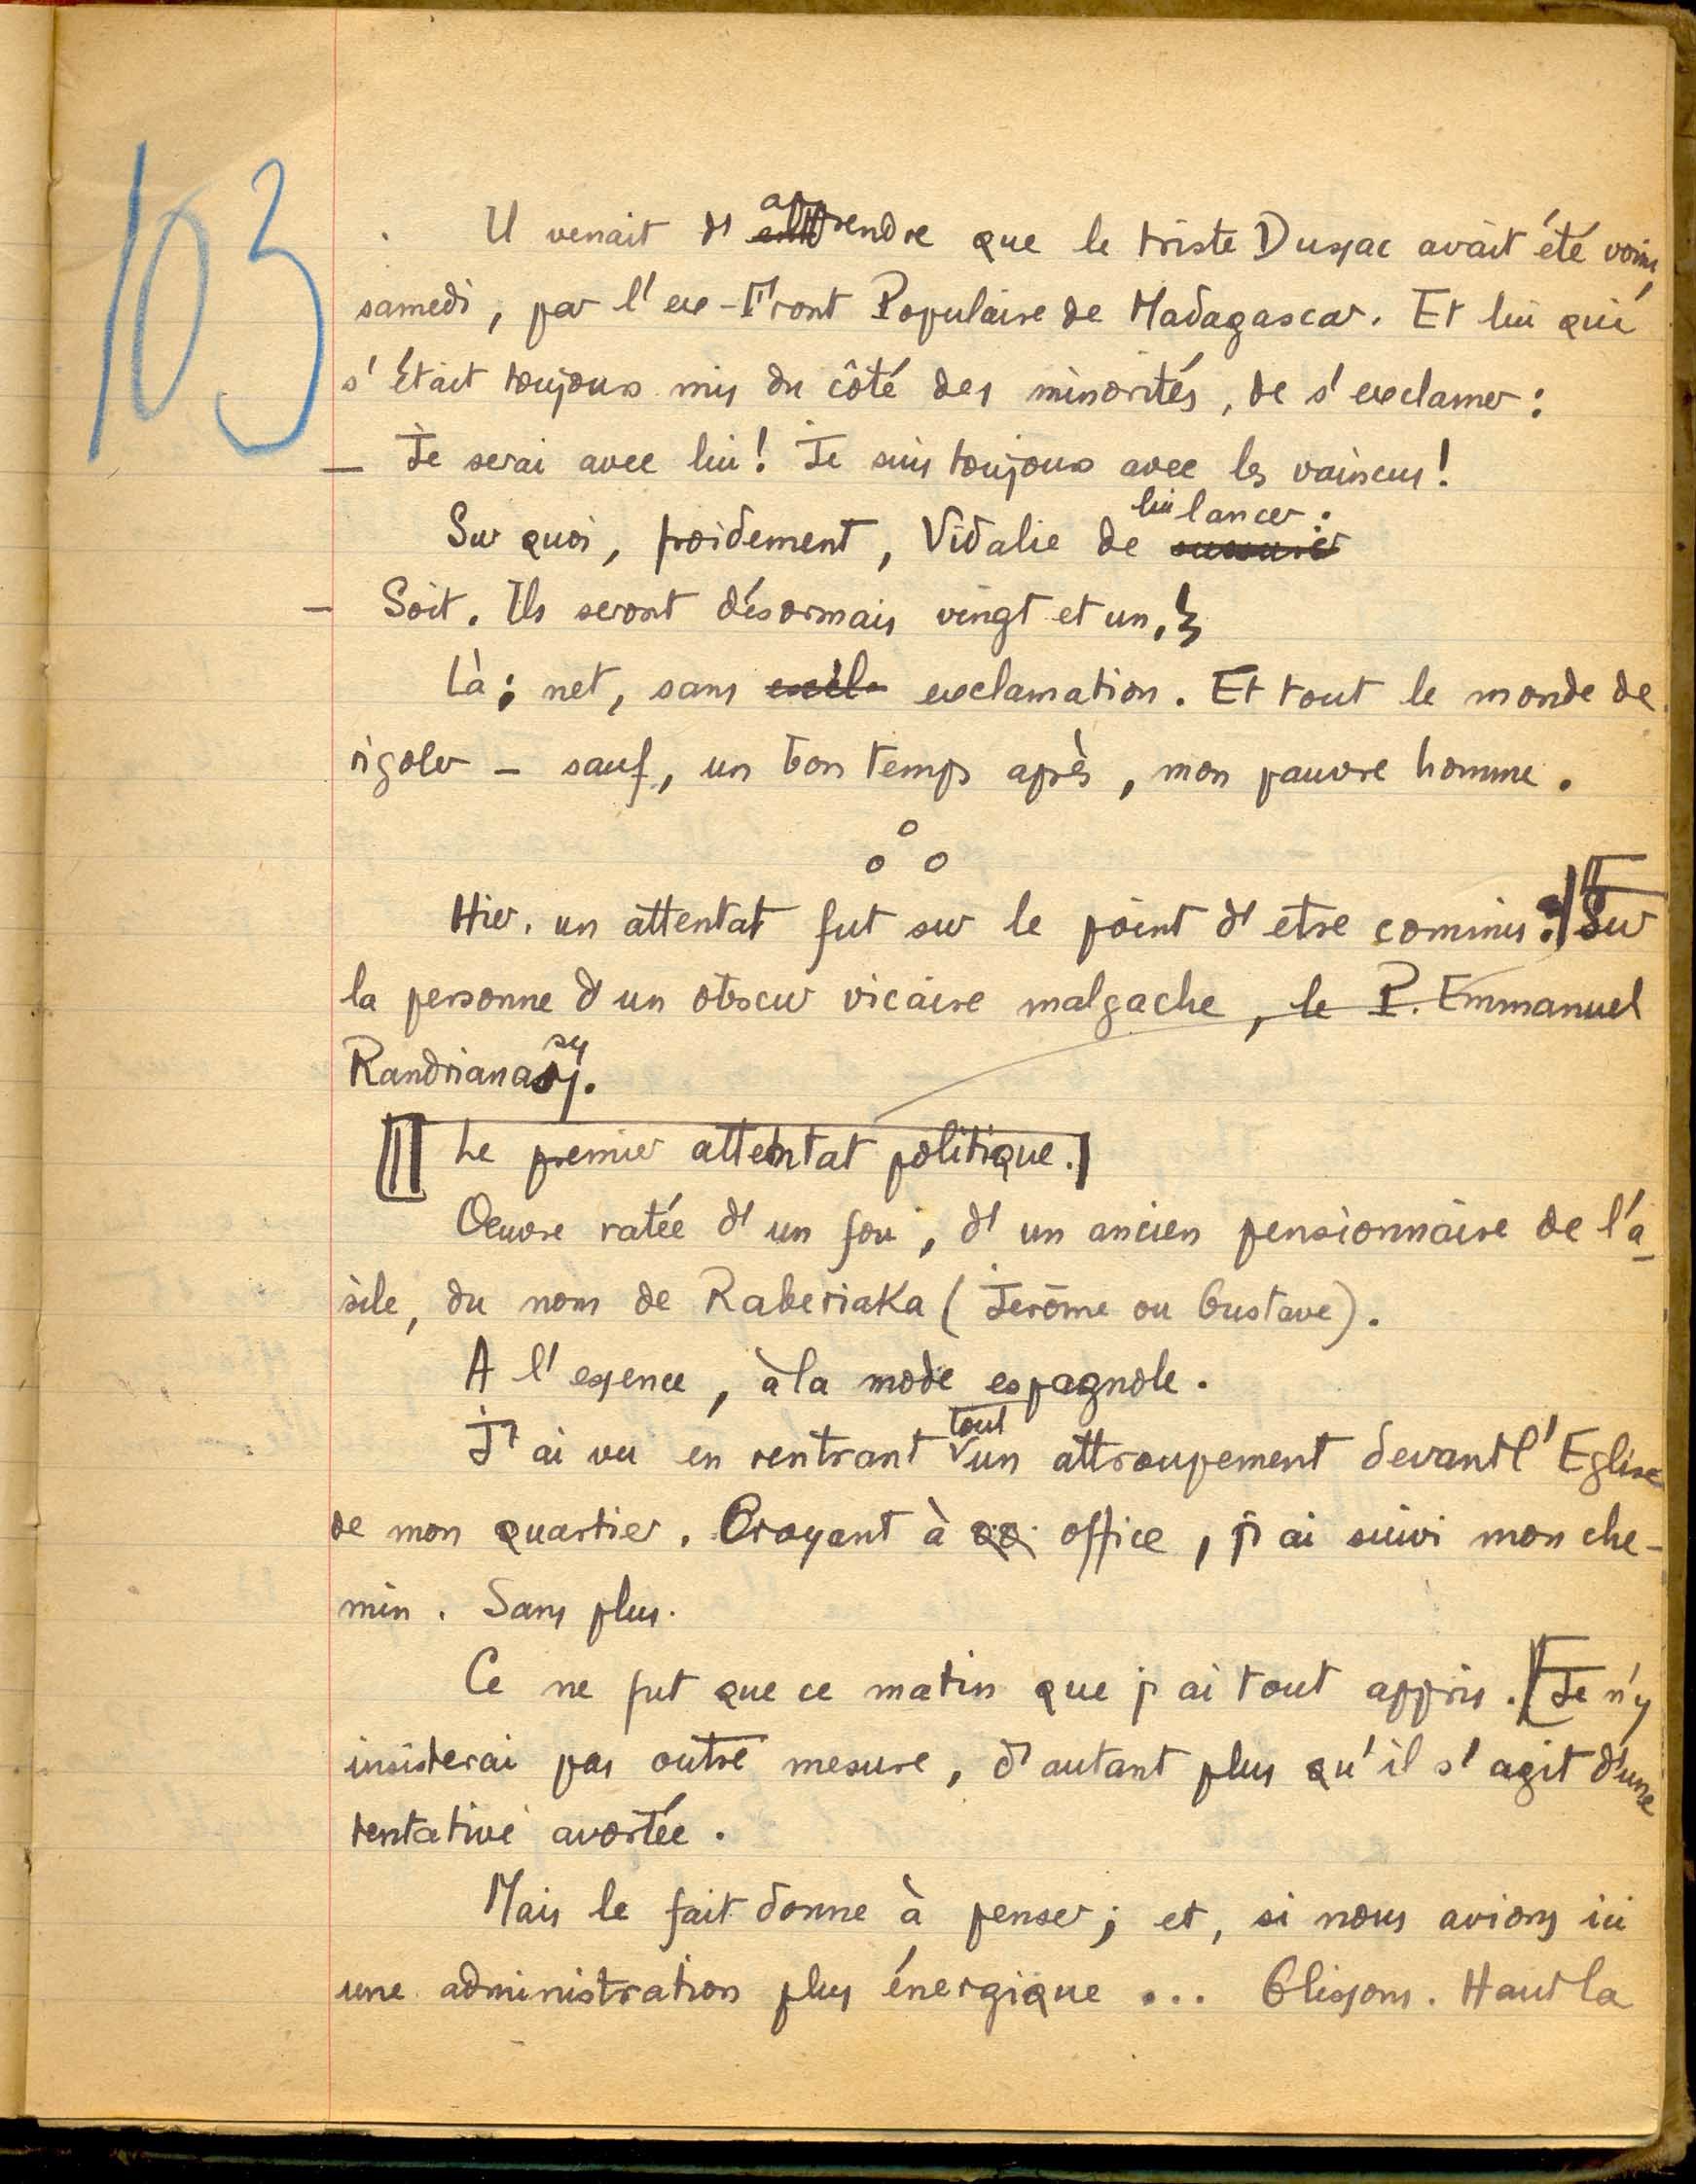 103
Il venait d'apprendre que le triste Dussac avait été vaincu,
samedi, par l'ex-Front Populaire de Madagascar. Et lui qui
s'était toujours mis du côté des minorités, de s'exclamer :
— Je serai avec lui ! Je suis toujours avec les vaincus !
Sur quoi, froidement, Vidalie de lui lancer :
— Soit. Ils seront désormais vingt et un.
Là ; net, sans exclamation. Et tout le monde de
rigoler — sauf, un bon temps après, mon pauvre homme.
o
o o
Hier, un attentat fut sur le point d'etre commis. Sur
la personne d'un obscur vicaire malgache, le P. Emmanuel
Randrianasy.
Le premier attentat politique.
Oeuvre ratée d'un fou, d'un ancien pensionnaire de l'a-
sile, du nom de Raberiaka (Jerôme ou Gustave).
A l'essence, à la mode espagnole.
J'ai vu en rentrant tout un attroupement devant l'Eglise
de mon quartier. Croyant à office, j'ai suivi mon che-
min. Sans plus.
Ce ne fut que ce matin que j'ai tout appris. Je n'y
insisterai pas outre mesure, d'autant plus qu'il s'agit d'une
tentative avortée.
Mais le fait donne à penser ; et, si nous avions ici
une administration plus énergique ... Glissons. Haut la